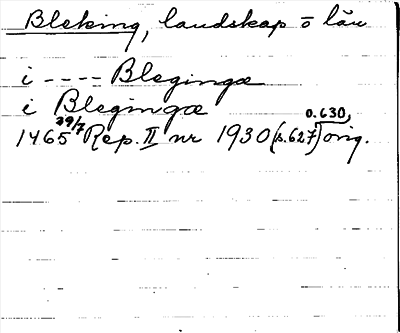 Bleking, landskap o län
i ---- Blegingæ
i Blegingæ
1465 29/7 Rep. II nr 1930 (s. 627 o. 630) orig.